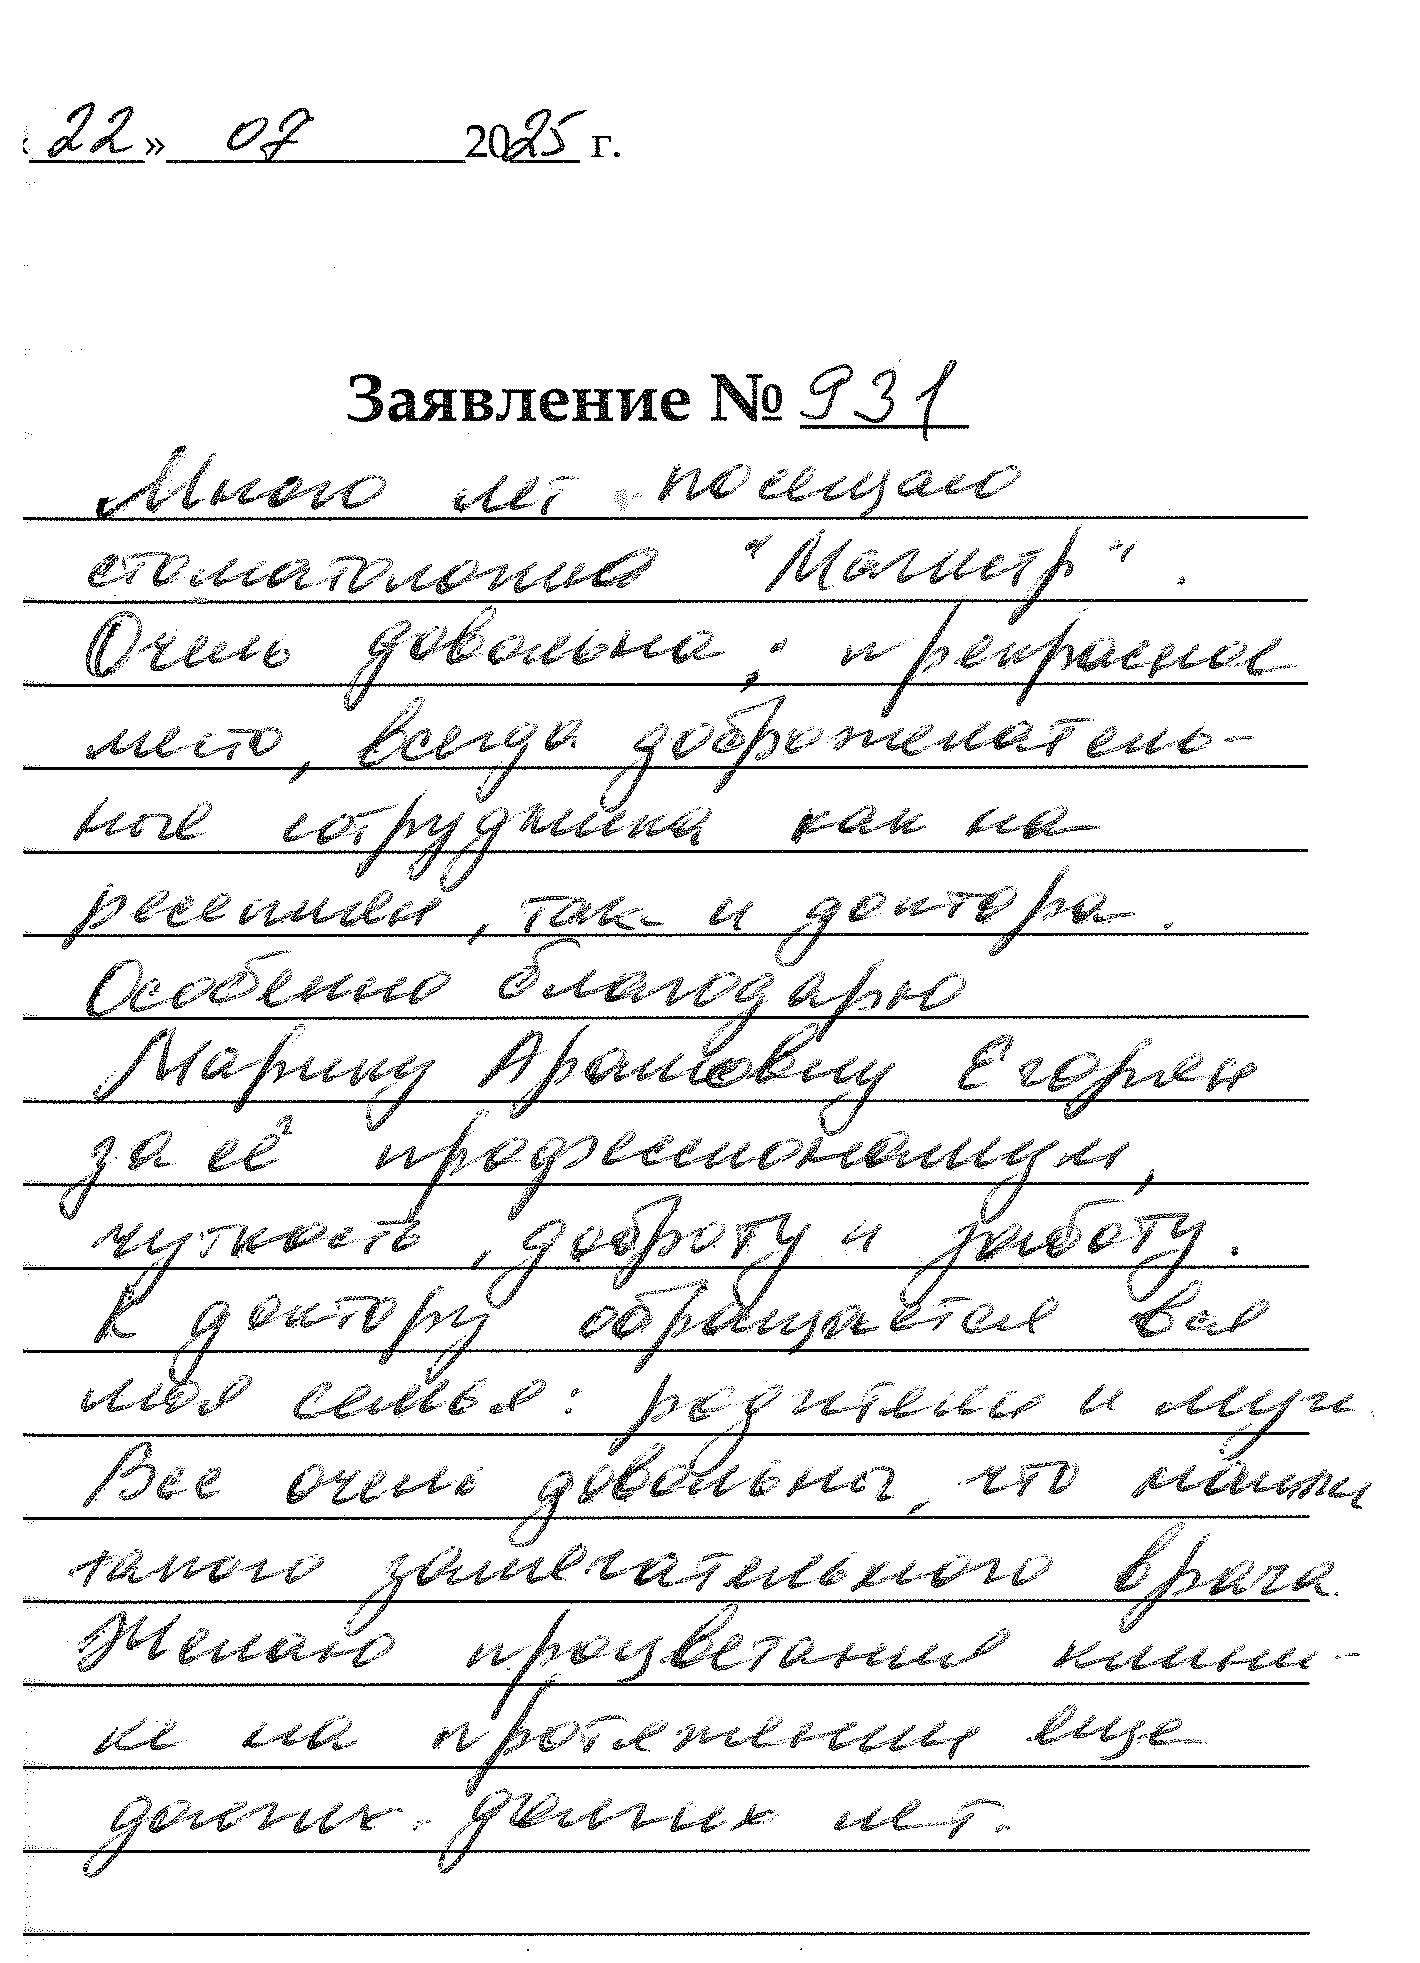 «22» 07 2025 г.
Заявление № 931
Много лет посещаю
стоматологию "Магистр".
Очень довольна; прекрасное
место, всегда доброжелатель-
ные сотрудника как на
ресепшен, так и доктора.
Особенно благодарю
Марину Арамовну Егорян
за её профессионализм,
чуткость, доброту и заботу.
К доктору обращается вся
моя семья: родители и муж.
Все очень довольны, что нашли
такого замечательного врача.
Желаю процветания клини-
ке на протяжении еще
долгих-долгих лет.